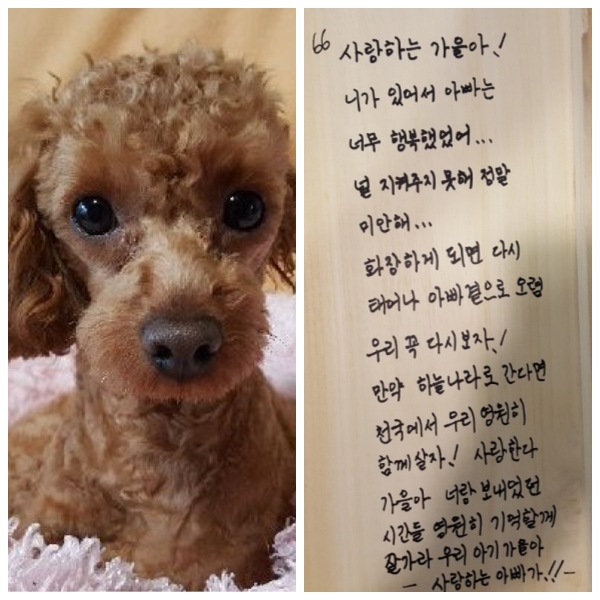 66 사랑하는 가을아!
니가 있어서 아빠는
너무 행복했었어...
널 지켜주지 못해 정말
미안해...
화장하게 되면 다시
태어나 아빠곁으로 오렴
우리 꼭 다시보자!
만약 하늘나라로 간다면
천국에서 우리 영원히
함께살자! 사랑한다
가을아 너랑 보내었던
시간들 영원히 기억할께
잘가라 우리 아기가을아
— 사랑하는 아빠가!! —